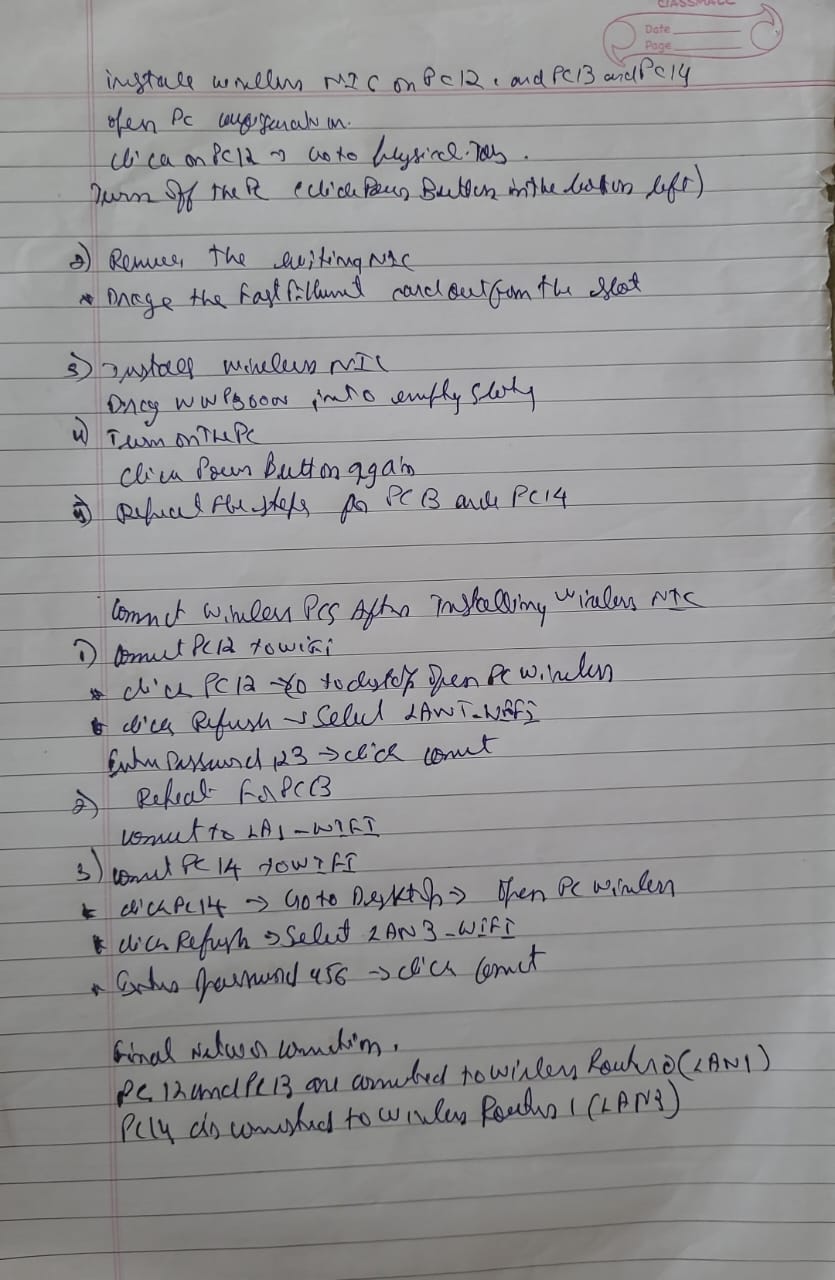 CLASSMATE
Date
Page
install wireless NIC on PC12, and PC13 and PC14
open PC configuration.
Click on PC12 → Go to Physical Tab.
Turn Off the PC (click Power Button in the bottom left)
2) Remove the exiting NIC
* Drage the Fast Ethernet card out from the slot
3) Install wireless NIC
Drag into empty slot
4) Turn on The PC
Click Power Button again
5) Repeat the steps for PC13 and PC14
Connect wireless PCs After Installing wireless NIC
1) Connect PC12 to wifi
* click PC12 → Go to desktop open PC wireless
* click Refresh → Select LAN1-WIFI
Enter Password 123 → click connect
2) Repeat For PC13
connect to LA1-WIFI
3) connect PC14 to WIFI
* click PC14 → Go to Desktop → Open PC wireless
* click Refresh → Select LAN3-WIFI
* Enter password 456 → click Connect
Final Network connection.
PC12 and PC13 are connected to wireless Router 0 (LAN1)
PC14 is connected to wireless Router 1 (LAN3)